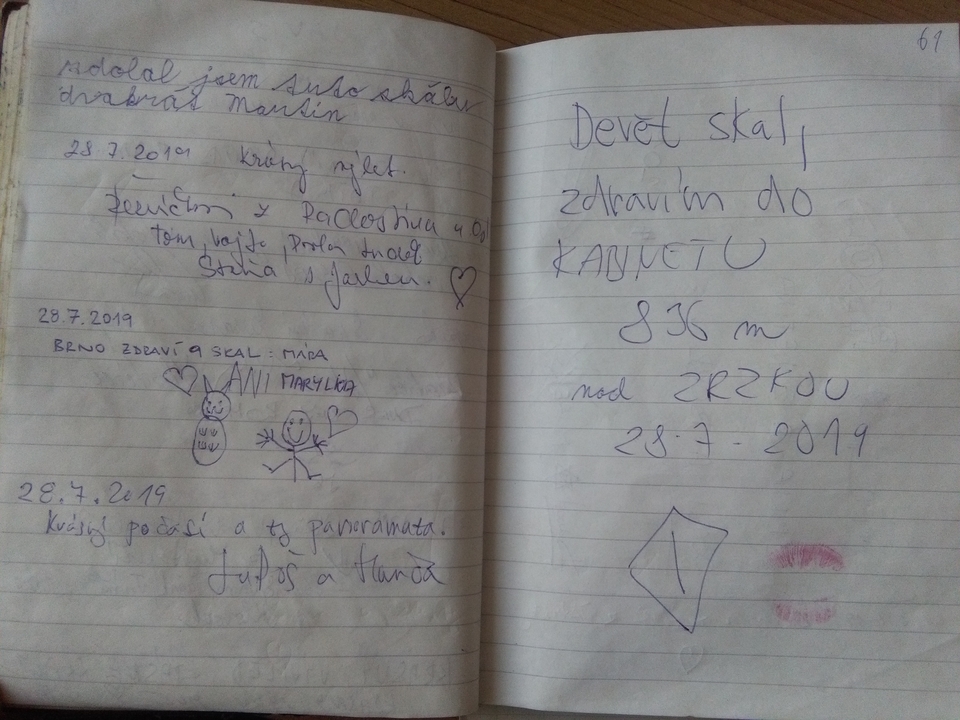 zdolal jsem tuto skálu
dvakrát Martin
28.7.2019 Krásný výlet.
z u
Tom, Vojta,
Stáňa s Jarkem.
28.7.2019
BRNO ZDRAVÍ 9 SKAL: MÁRA
ANI MARYLKA
28.7.2019
Krásný počasí a ty panoramata.
Luboš a Hanča
61
Devět skal,
zdravím do
KABINETU
836 m
nad ZRZKOU
28.7.2019